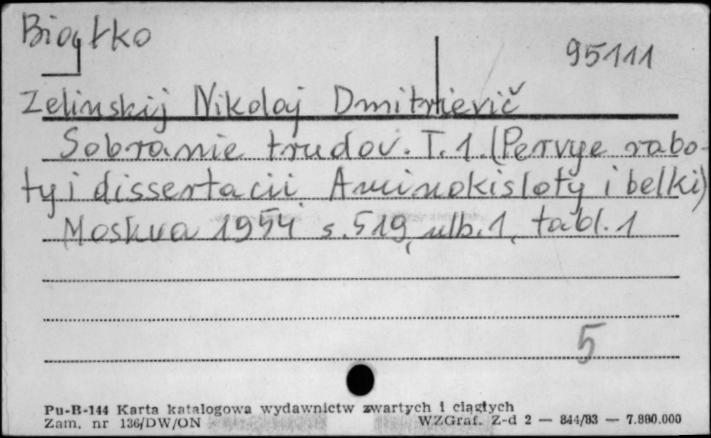 Biogłko
95111
Zelinskij Nikolaj Dmitrievič
Sobranie trudov. T. 1. (Pervye rabo-
ty i dissertacii. Aminokisloty i belki)
Moskva 1954 s. 519, ulb. 1, tabl. 1
5
Pu-B-144 Karta katalogowa wydawnictw zwartych i ciągłych
Zam. nr 136/DW/ON WZGraf. Z-d 2 — 844/83 — 7.800.000